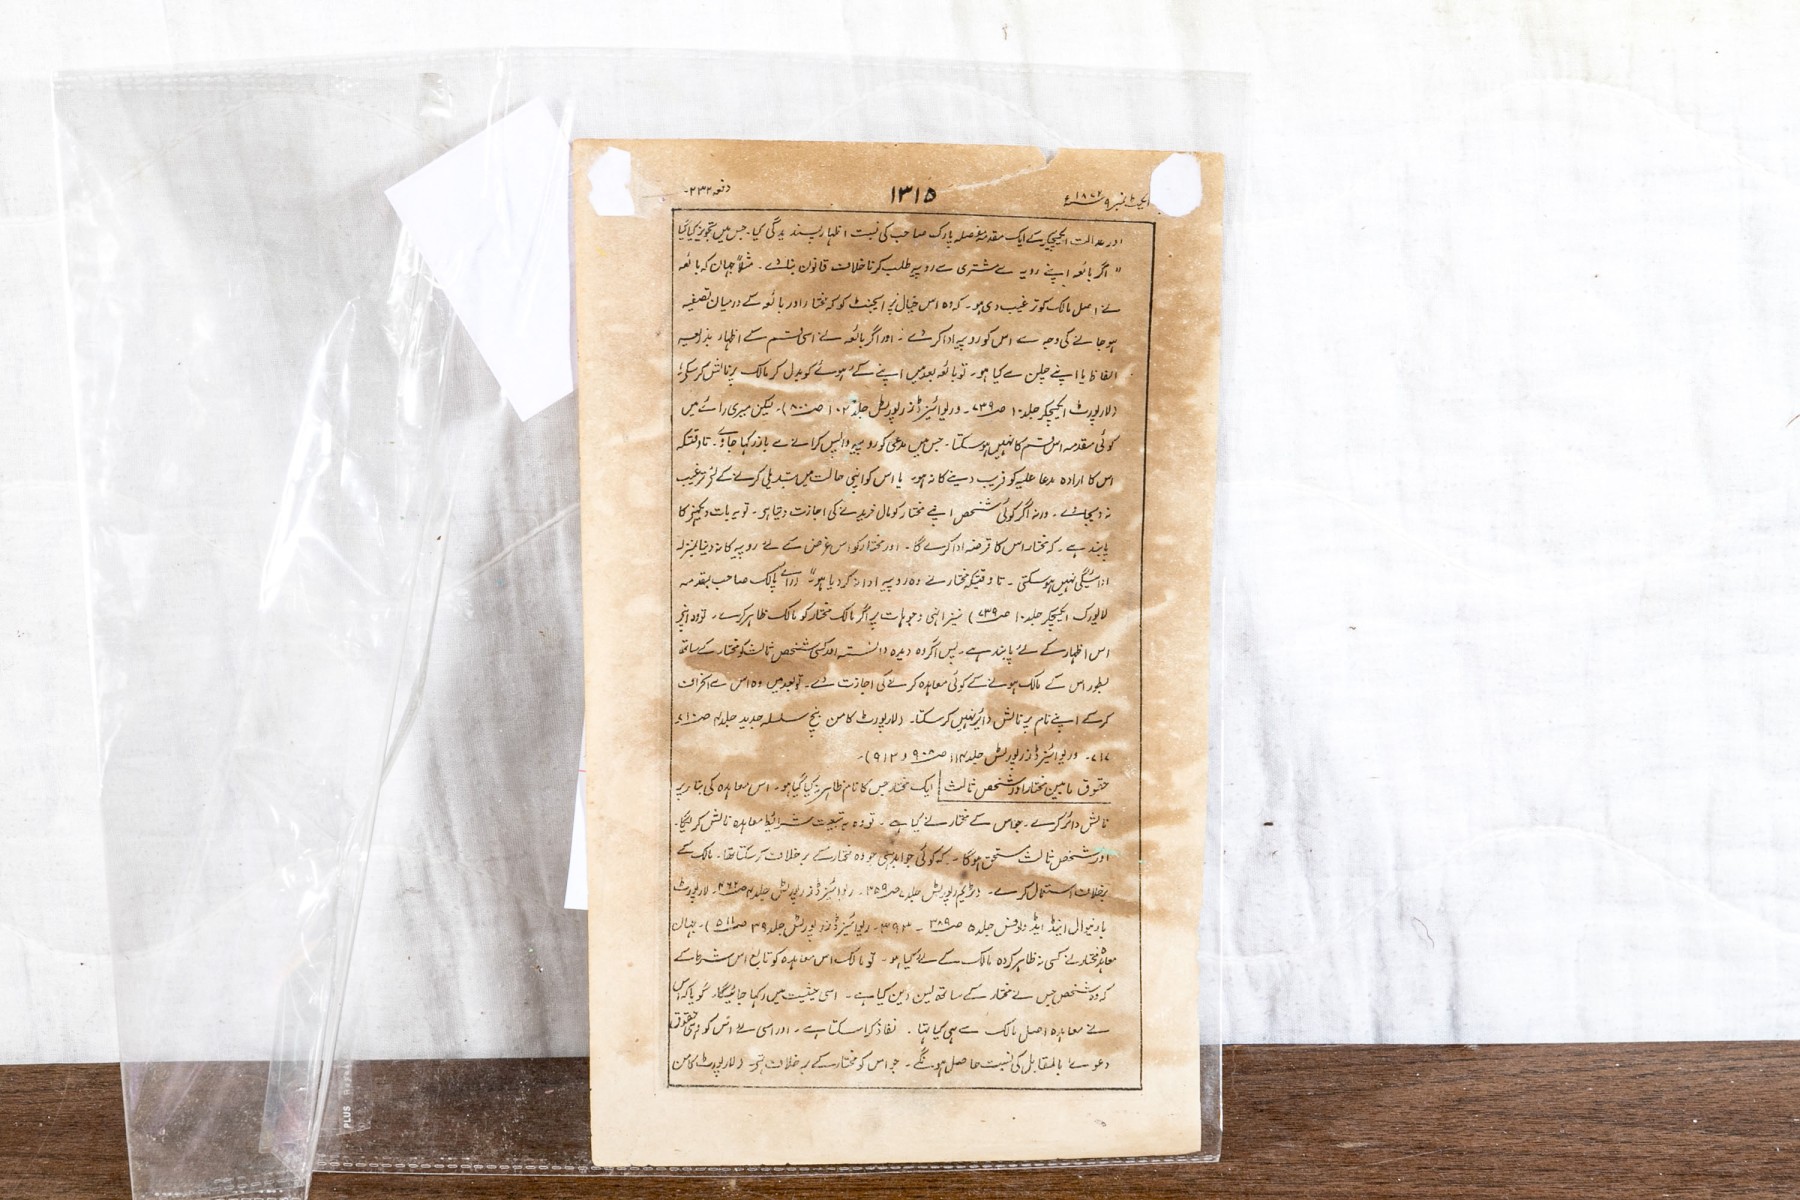 ایکٹ نمبر ۹ ۱۸۷۲ء
۱۳۱۵
دفعہ ۲۳۲-
اور عدالت ایکسچیکر کے ایک مقدمہ میں فیصلہ پارک صاحب کی نسبت اظہار پسندیدگی کیا۔ جس میں تجویز کیا گیا
" اگر بائعہ اپنے رویہ سے مشتری سے روپیہ طلب کرنا خلاف قانون بنادے ۔ مثلاً جہان کہ بائعہ
نے اصل مالک کو ترغیب دی ہو۔ کہ وہ اس خیال پر ایجنٹ کو کہ مختار اور بائعہ کے درمیان تصفیہ
ہو جانے کی وجہ سے اس کو روپیہ ادا کر دے ۔ اور اگر بائعہ نے اسی قسم کے اظہار بذریعہ
الفاظ یا اپنے چلن سے کیا ہو۔ تو بائعہ بعد میں اپنے کہے ہوئے کو بدل کر مالک پر نالش کر سکے
(لارپورٹ ایکسچیکر جلد ۱۰ صہ ۷۳۹ ۔ و ریوائیزڈ رپورٹس جلد ۱۰۲ صہ ۸۰۰)۔ لیکن میری رائے میں
کوئی مقدمہ اس قسم کا نہیں ہو سکتا۔ جس میں مدعی کو روپیہ واپس کرانے سے باز رکہا جاوے۔ تا وقتیکہ
اس کا ارادہ مدعا علیہ کو فریب دینے کا نہ ہو۔ یا اس کو اپنی حالت میں تبدیلی کرنے کے لئے ترغیب
نہ دیجاے۔ ورنہ اگر کوئی شخص اپنے مختار کو مال خریدنے کی اجازت دیتا ہو۔ تو یہ بات دیکہنے کا
پابند ہے ۔ کہ مختار اس کا قرضہ ادا کرے گا ۔ اور مختار کو اس غرض کے لئے روپیہ کا نہ دینا بمنزلہ
ادائیگی نہیں ہو سکتی ۔ تا وقتیکہ مختار نے وہ روپیہ ادا نہ کر دیا ہو" (رائے پالک صاحب بمقدمہ
لاپورک ایکسچیکر جلد ۱۰ صہ ۷۳۹) نیز انہی وجوہات پر اگر مالک مختار کو مالک ظاہر کرے۔ تو وہ اپنے
اس اظہار کے لئے پابند ہے۔ پس اگر وہ دیدہ دانستہ کسی شخص ثالث کو مختار کے ساتھ
بطور اس کے مالک ہونے کے کوئی معاہدہ کرنے کی اجازت دے۔ تو بعد میں وہ اس سے انحراف
کرکے اپنے نام پر نالش دائر نہیں کر سکتا۔ (لارپورٹ کامن بنچ سلسلہ جدید جلد ۴ صہ ۷۱۰
۷۱۷۔ و ریوائیزڈ رپورٹس جلد ۱۱۴ صہ ۹۰۸ و ۹۱۲)۔
حقوق مابین مختار اور شخص ثالث | ایک مختار جس کا نام ظاہر نہ کیا گیا ہو۔ اس معاہدہ کی بنا پر
نالش دائر کرے ۔ جو اس کے مختار نے کیا ہے ۔ تو وہ بہ تبعیت شرائط معاہدہ نالش کریگا۔
اور شخص ثالث مستحق ہوگا ۔ کہ کوئی جوابدہی جو وہ مختار کے برخلاف کر سکتا تھا۔ مالک کے
برخلاف استعمال کرے۔ (ٹرم رپورٹس جلد ۷ صہ ۳۵۹۔ ریوائیزڈ رپورٹس جلد ۴ صہ ۴۶۲۔ لارپورٹ
بارنیوال اینڈ ایڈ دلفس جلد ۵ صہ ۳۸۹ ۔ ۳۹۳۔ ریوائیزڈ رپورٹس جلد ۳۹ صہ ۵۱۱)۔ جہان
معاہدہ مختار نے کسی نہ ظاہر کردہ مالک کے لئے کیا ہو۔ تو مالک اس معاہدہ کو تابع اس شرط کے
کہ وہ شخص جس نے مختار کے ساتھ لین دین کیا ہے۔ اسی حیثیت میں رکہا جائیگا۔ گویا کہ اس
نے معاہدہ اصل مالک سے ہی کیا تہا ۔ نفاذ کرا سکتا ہے ۔ اور اسی لئے اس کو وہی حقوق
دعوے بالمقابل کی نسبت حاصل ہونگے۔ جو اس کو مختار کے برخلاف تہے۔ (لارپورٹ کامن